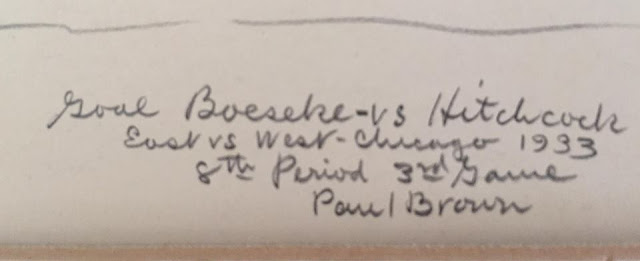 Goal Boeseke-vs Hitchcock
East vs West-Chicago 1933
8th Period 3rd Game
Paul Brown